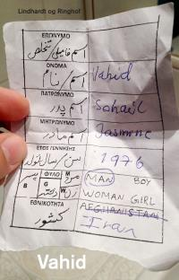 Lindhardt og Ringhof
ΕΠΩΝΥΜΟ
اسم فامیلی/تخلص
ΟΝΟΜΑ
اسم/نام
Vahid
ΠΑΤΡΩΝΥΜΟ
اسم پدر
Sohail
ΜΗΤΡΩΝΥΜΟ
اسم مادر
Jasmine
ΕΤΟΣ ΓΕΝΝΗΣΗΣ
سن/سال تولد
1976
ΦΥΛΟ
مرد
MAN BOY
زن
WOMAN GIRL
ΕΘΝΙΚΟΤΗΤΑ
کشور
AFGHANISTAN
Iran
Vahid